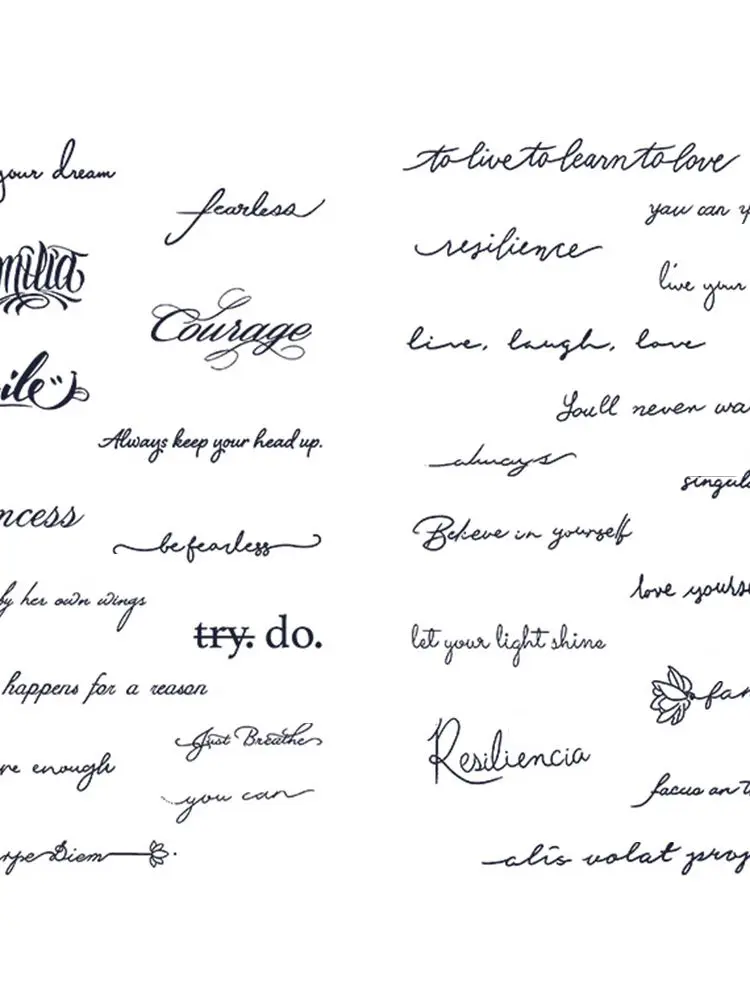 your dream
fearless
milia
Courage
ile"
Always keep your head up.
ncess
be fearless
by her own wings
try. do.
happens for a reason
Just Breathe
re enough
you can
rpe Diem
to live to learn to love
you can y
resilience
live your
live, laugh, love
You'll never wa
always
singula
Believe in yourself
love yourse
let your light shine
fam
Resiliencia
focus on t
alis volat prop